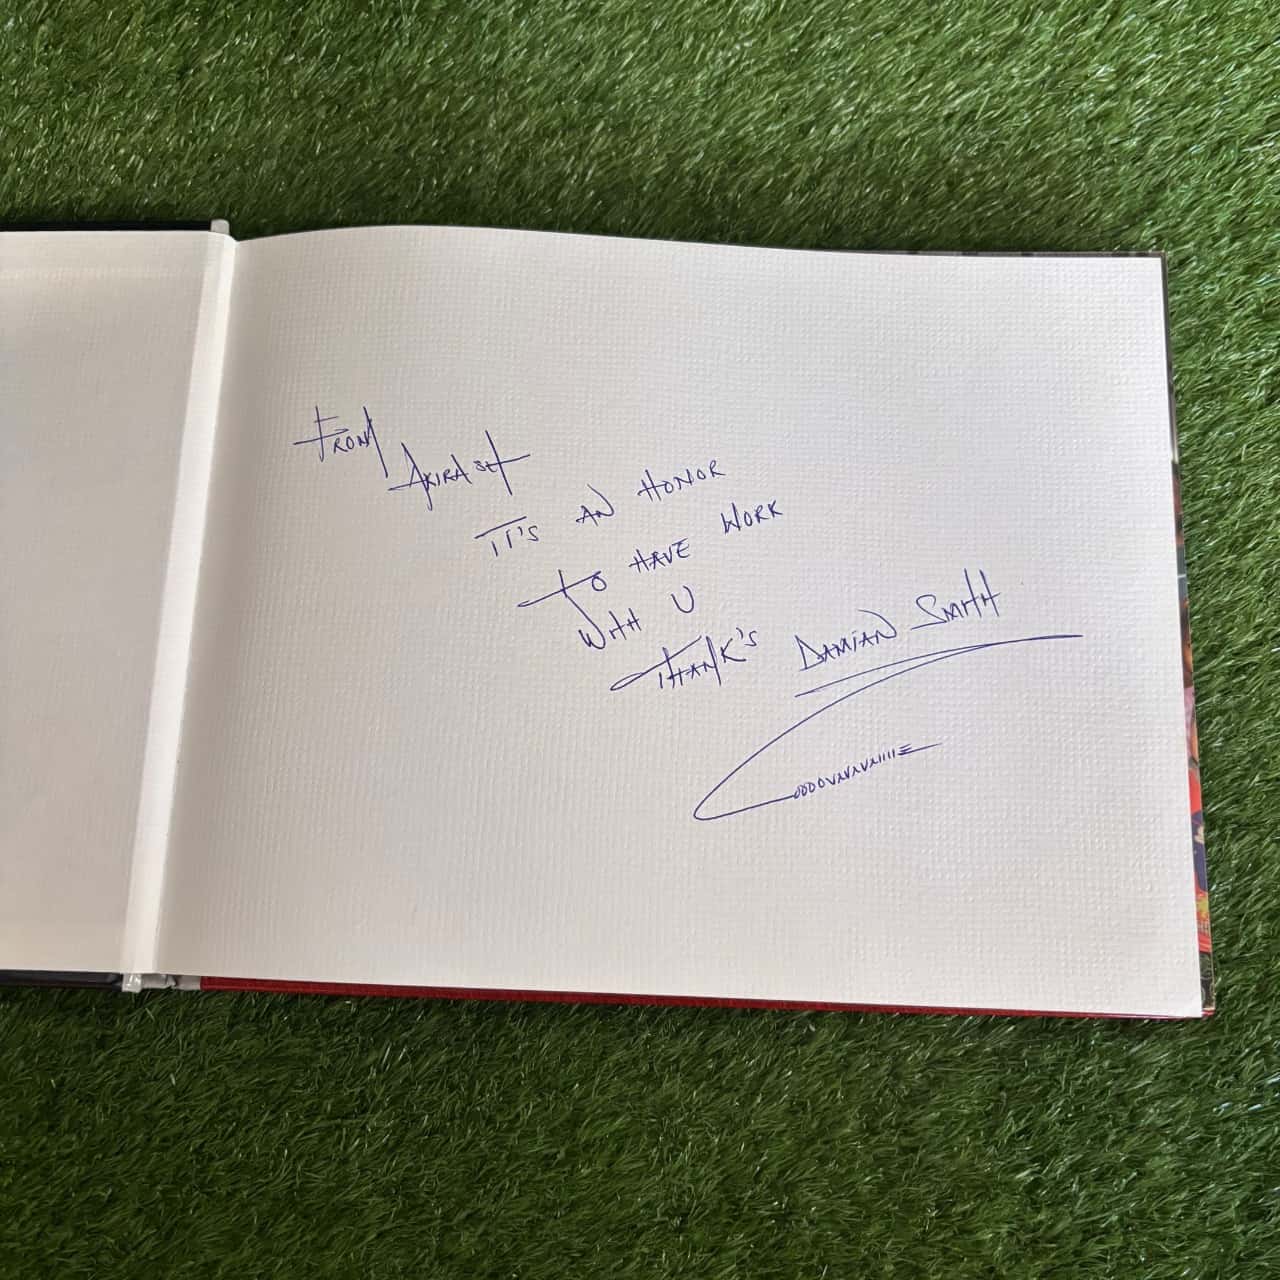 FROM
AKIRA
IT'S AN HONOR
TO HAVE WORK
WITH U
THANK'S DAMIAN SMITH